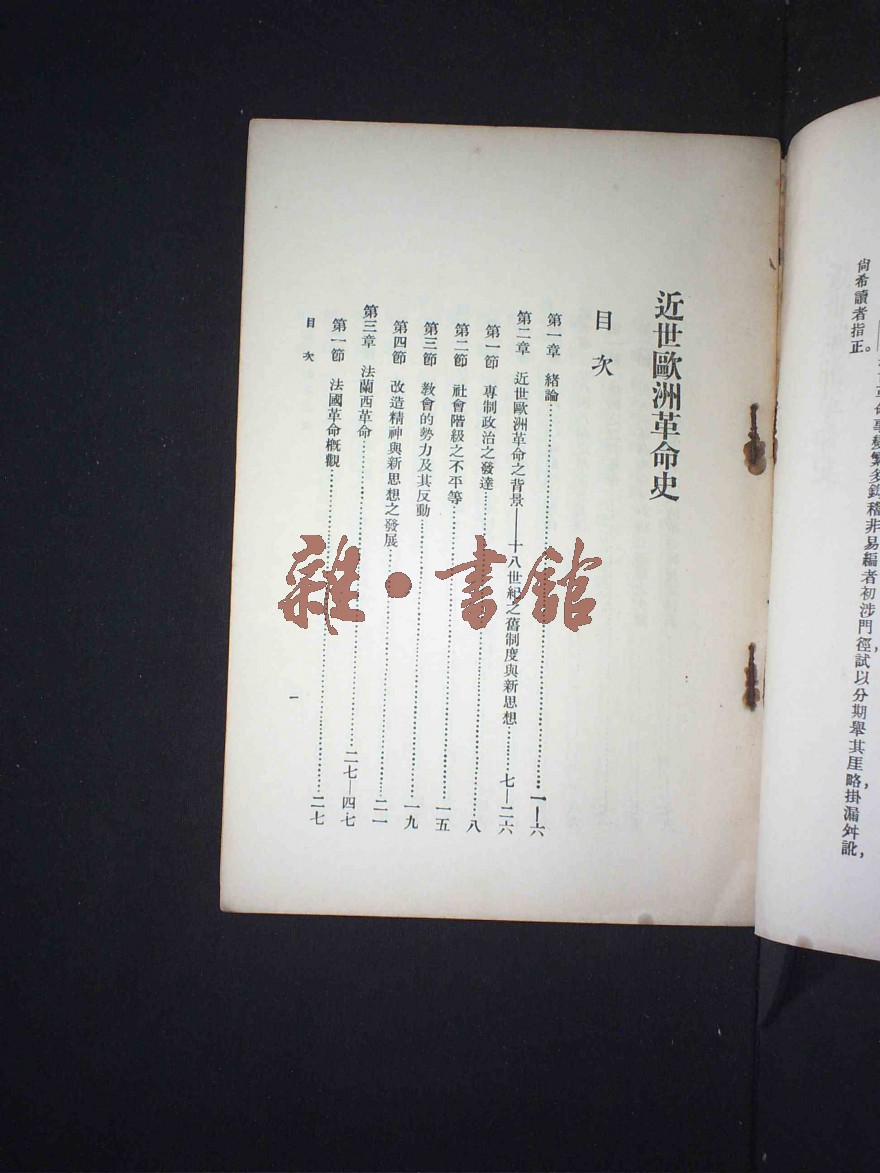 尙希讀者指正。
革命事變繁多錯稽非易編者初涉門徑試以分期舉其厓略掛漏舛訛，
近世歐洲革命史
目次
第一章 緒論……一—六
第二章 近世歐洲革命之背景——十八世紀之舊制度與新思想……七—二六
第一節 專制政治之發達……八
第二節 社會階級之不平等……一五
第三節 敎會的勢力及其反動……一九
第四節 改造精神與新思想之發展……二一
第三章 法蘭西革命……二七—四七
第一節 法國革命概觀……二七
目次
一
雜·書館